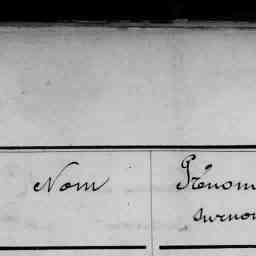 Nom
Prénom
surnom